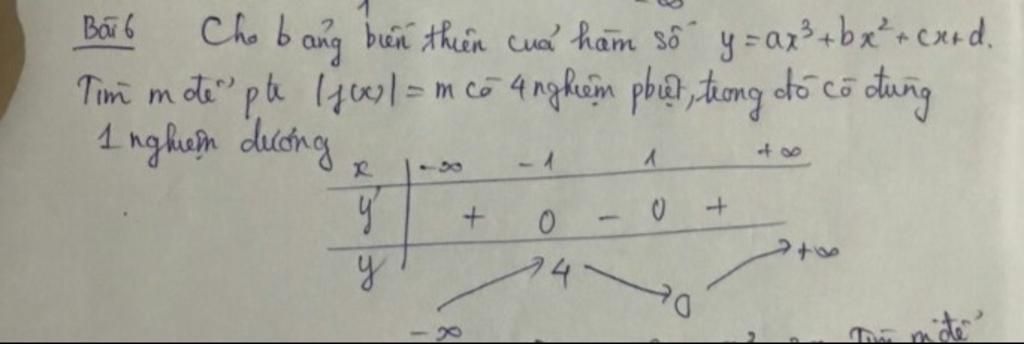 Bài 6 Cho bảng biến thiên của hàm số y = ax³ + bx² + cx + d.
Tìm m để pt |f(x)| = m có 4 nghiệm pbiệt, trong đó có đúng
1 nghiệm dương
x -∞ -1 1 +∞
y' + 0 - 0 +
y -∞ 4 0 +∞
Tìm m để